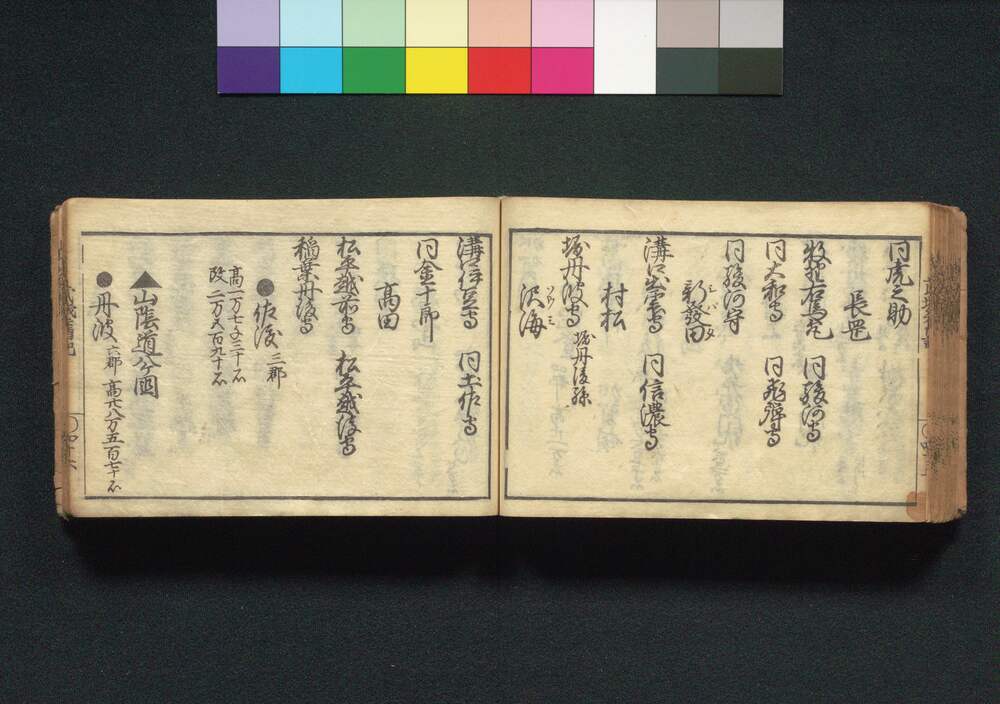 同虎之助
長岡
牧野右馬允　同駿河守
同大和守　同飛騨守
同駿河守
新發田
溝口出雲守　同信濃守
村松
堀丹波守　堀丹後孫
沢海
溝口伊豆守　同土佐守
同金十郎
高田
松平越前守　松平越後守
稲葉丹後守
●佐渡　三郡
高一万七千三十石
改二万五百九十石
▲山陰道八ケ國
●丹波　六郡　高廿八万五百七十石